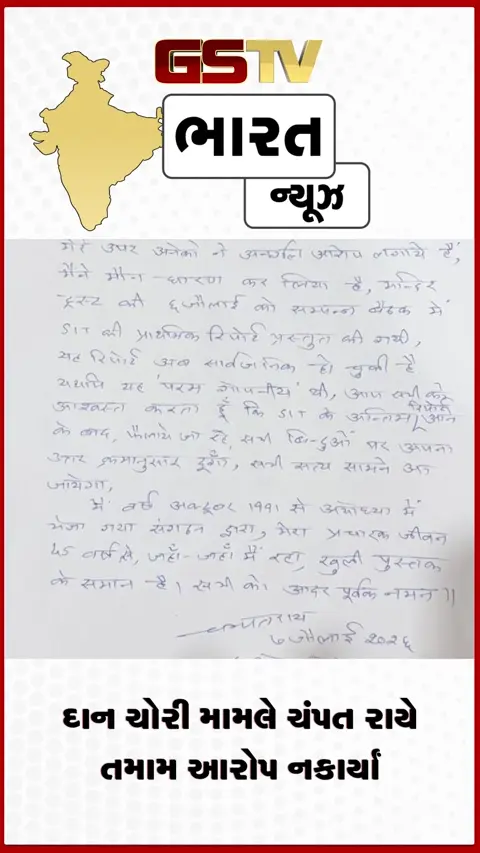 GSTV
ભારત
ન્યૂઝ
मेरे उपर अनेकों ने अनर्गल आरोप लगाये हैं,
मैंने मौन धारण कर लिया है, मन्दिर
ट्रस्ट की ६ जौलाई को सम्पन्न बैठक में
SIT की प्राथमिक रिपोर्ट प्रस्तुत की गयी,
यह रिपोर्ट अब सार्वजनिक हो चुकी है
यद्यपि यह 'परम गोपनीय' थी, आप सभी को
आश्वस्त करता हूँ कि SIT के अन्तिम रिपोर्ट आने
के बाद, फैलाये जा रहे, सभी बिन्दुओं पर अपना
उत्तर क्रमानुसार दूँगा, सभी सत्य सामने आ
जायेगा,
मैं वर्ष अक्टूबर 1991 से अयोध्या में
भेजा गया संगठन द्वारा, मेरा प्रचारक जीवन
45 वर्ष से, जहाँ-जहाँ मैं रहा, खुली पुस्तक
के समान है। सभी को आदर पूर्वक नमन॥
चम्पतराय
७ जौलाई २०२६
દાન ચોરી મામલે ચંપત રાયે
તમામ આરોપ નકાર્યાં